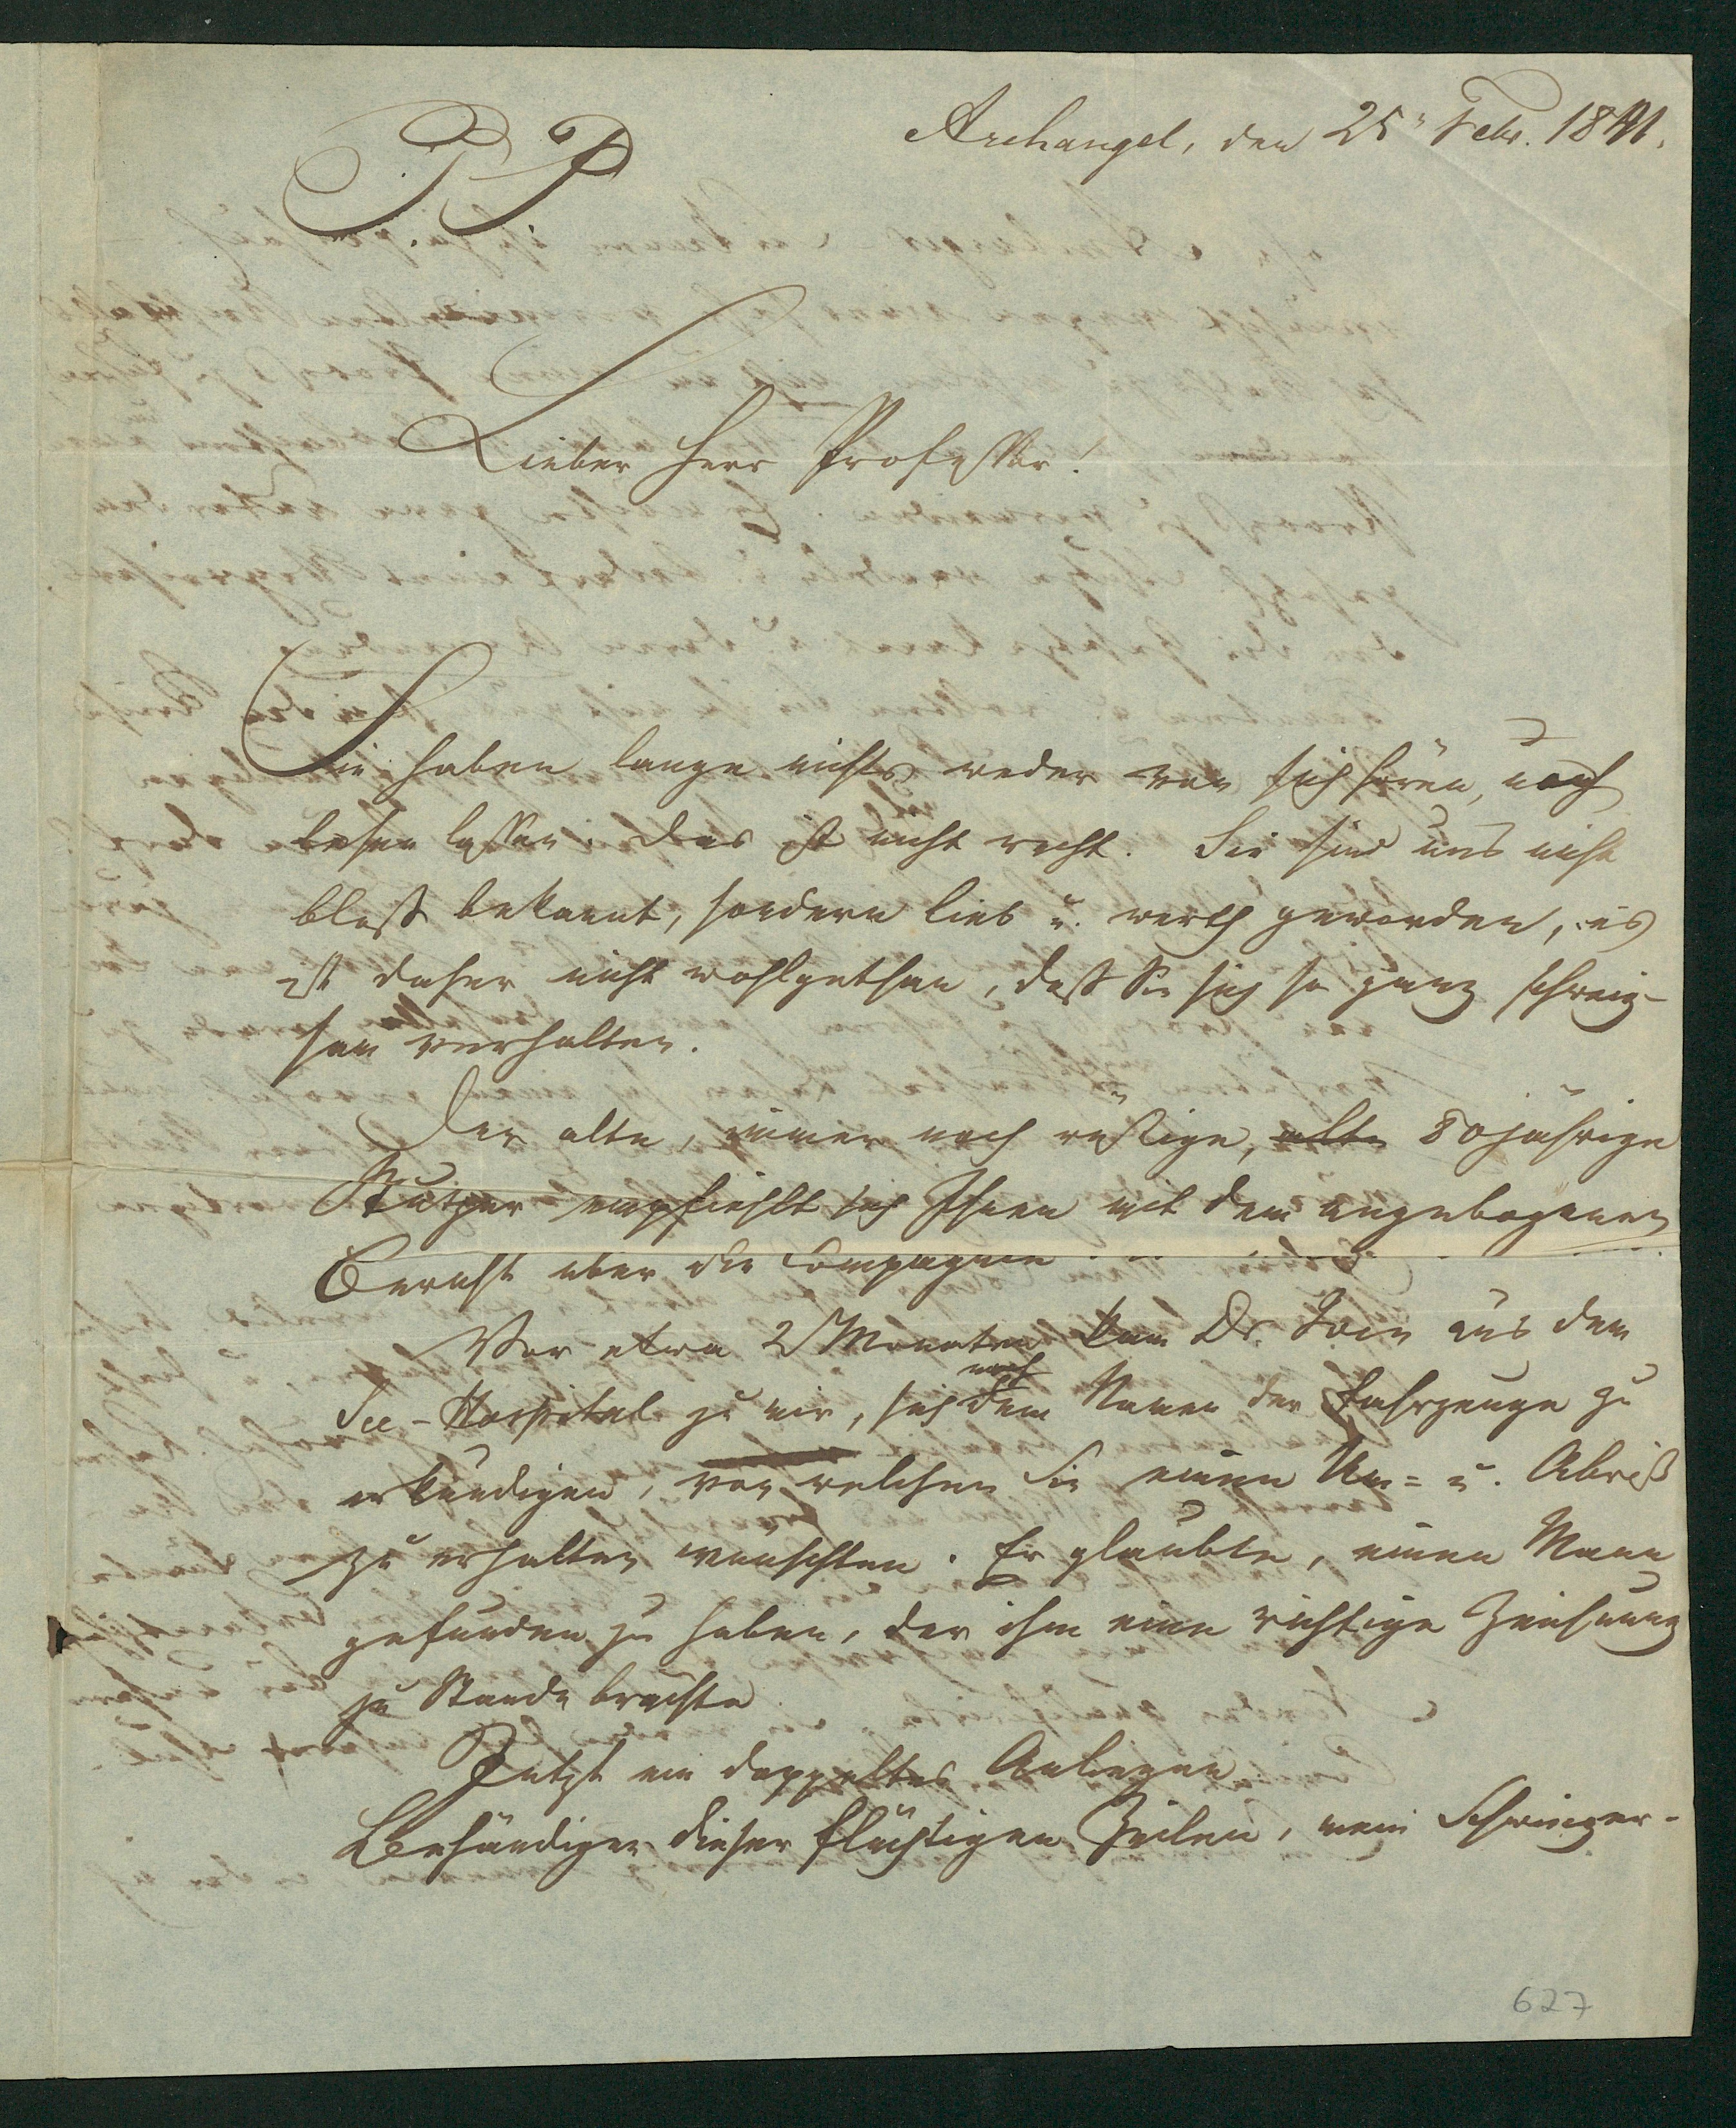 Archangel, den 25ⁿ Febr. 1841.
P. P.
Lieber Herr Professor!
Sie haben lange nichts weder von sich hören, noch
lesen lassen. Das ist nicht recht. Sie sind uns nicht
bloß bekannt, sondern lieb u. werth geworden, es
ist daher nicht wohlgethan, daß Sie sich so ganz schweig-
sam verhalten.
Der alte, immer noch rüstige, alte 80jährige
empfiehlt sich Ihnen mit dem angebogenen
Bericht über die Compagnie.
Vor etwa 2 Monaten kam Dr. aus dem
See-Hospital zu mir, sich nach dem Namen der Fahrzeuge zu
erkundigen, von welchen Sie einen Um= u. Abriß
zu erhalten wünschten. Er glaubte, einen Mann
gefunden zu haben, der ihm eine richtige Zeichnung
zu Stande brächte.
Jetzt ein doppeltes Anliegen.
Behändiger dieser flüchtigen Zeilen, mein Schwieger-
627